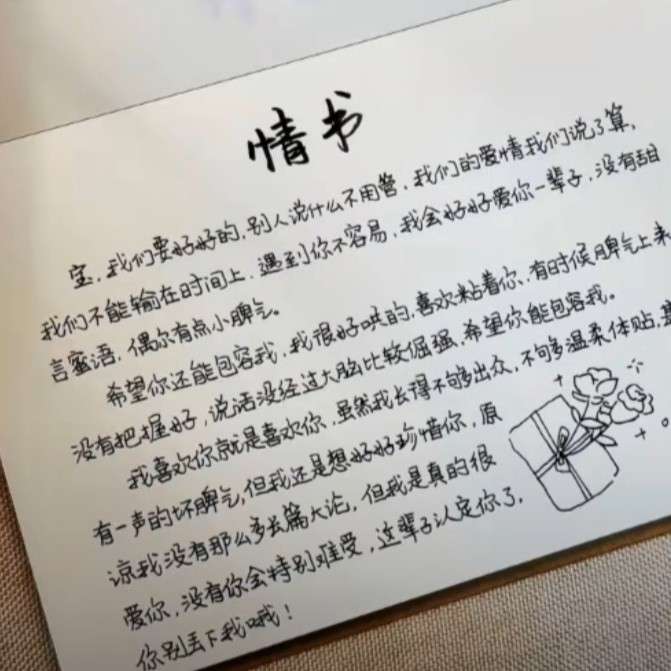 情书
宝，我们要好好的，别人说什么不用管，我们的爱情我们说了算，
我们不能输在时间上，遇到你不容易，我会好好爱你一辈子，没有甜
言蜜语，偶尔有点小脾气。
希望你还能包容我，我很好哄的，喜欢粘着你，有时候脾气上来
没有把握好，说话没经过大脑比较倔强，希望你能包容我。
我喜欢你就是喜欢你，虽然我长得不够出众，不够多温柔体贴，甚
有一声的坏脾气，但我还是想好好珍惜你，原
谅我没有那么多长篇大论，但我是真的很
爱你，没有你会特别难受，这辈子认定你了，
你别丢下我哦！